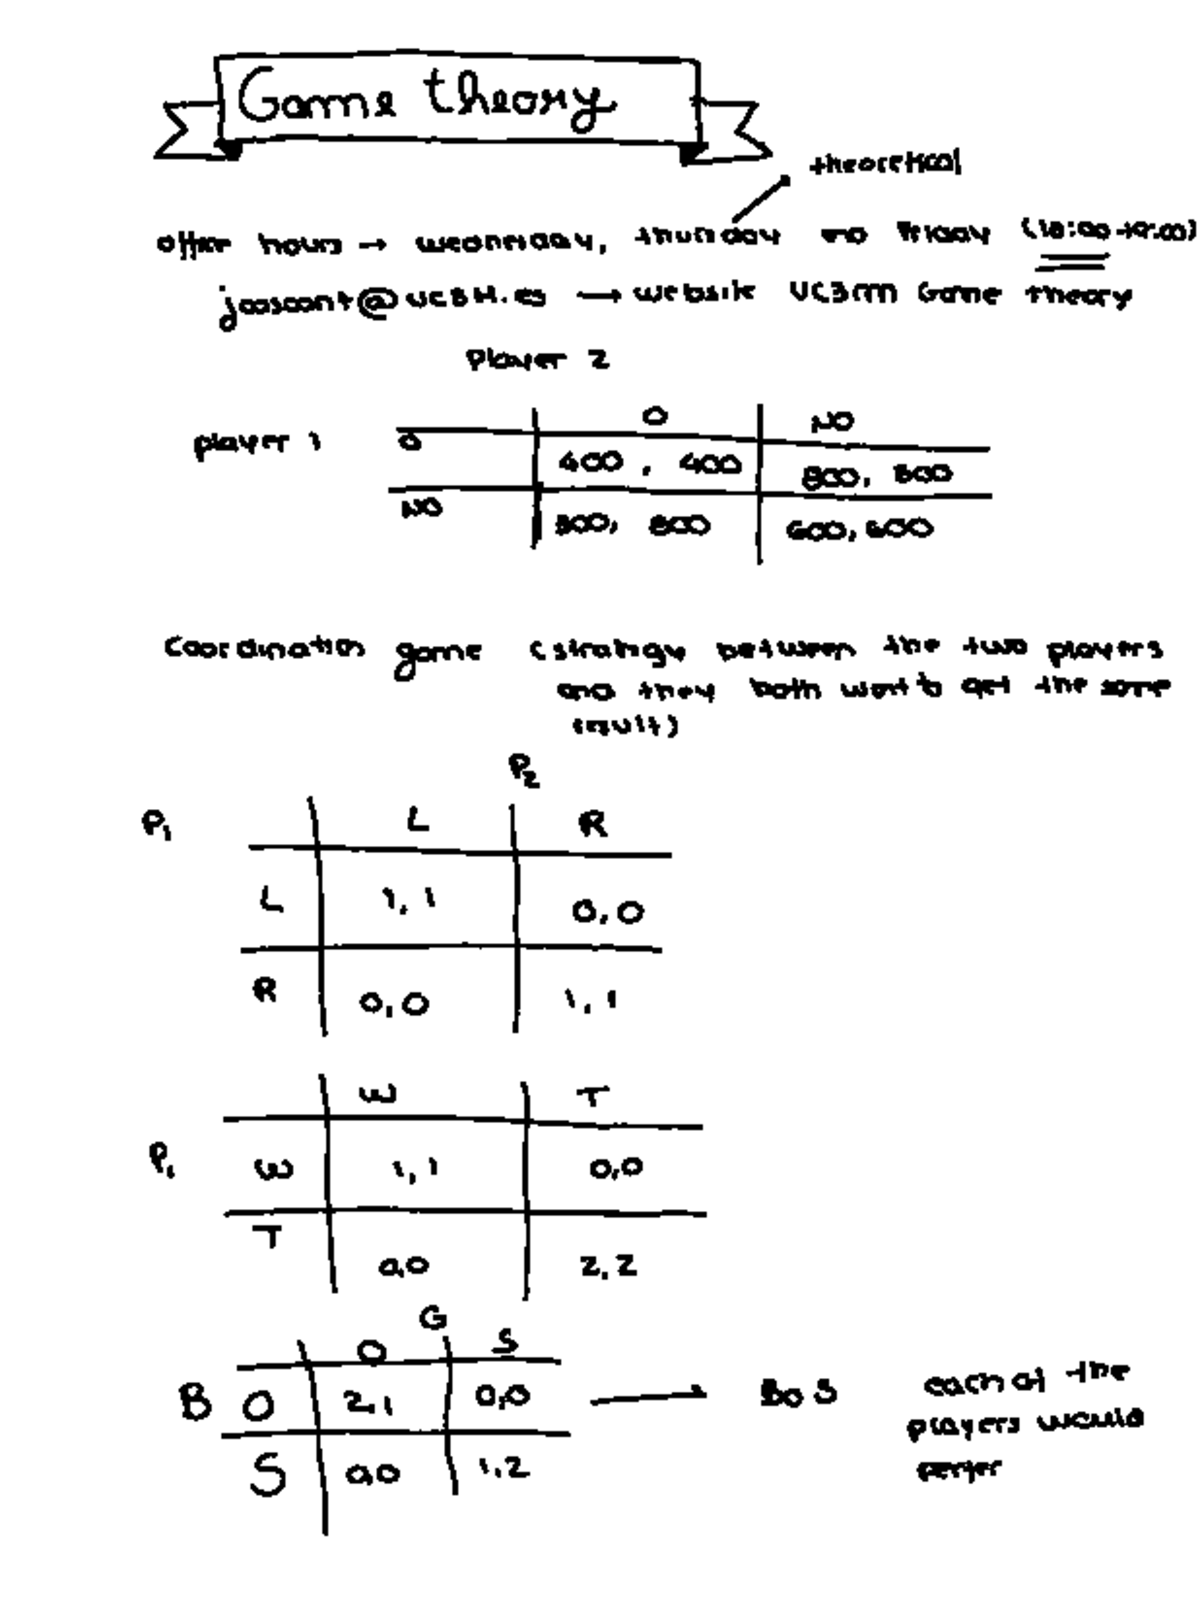 Game theory
theoretical
office hours → wednesday, thursday and Friday (18:00-19:00)
@UC3M.es → website UC3m Game theory
Player 2
O NO
player 1 O 400, 400 800, 300
NO 300, 800 600, 600
Coordination game (strategy between the two players
and they both want to get the same
result)
P2
P1 L R
L 1, 1 0, 0
R 0, 0 1, 1
W T
P1 W 1, 1 0,0
T 0,0 2, 2
G
O S
B O 2,1 0,0 → BoS each of the
players would
S 0,0 1,2